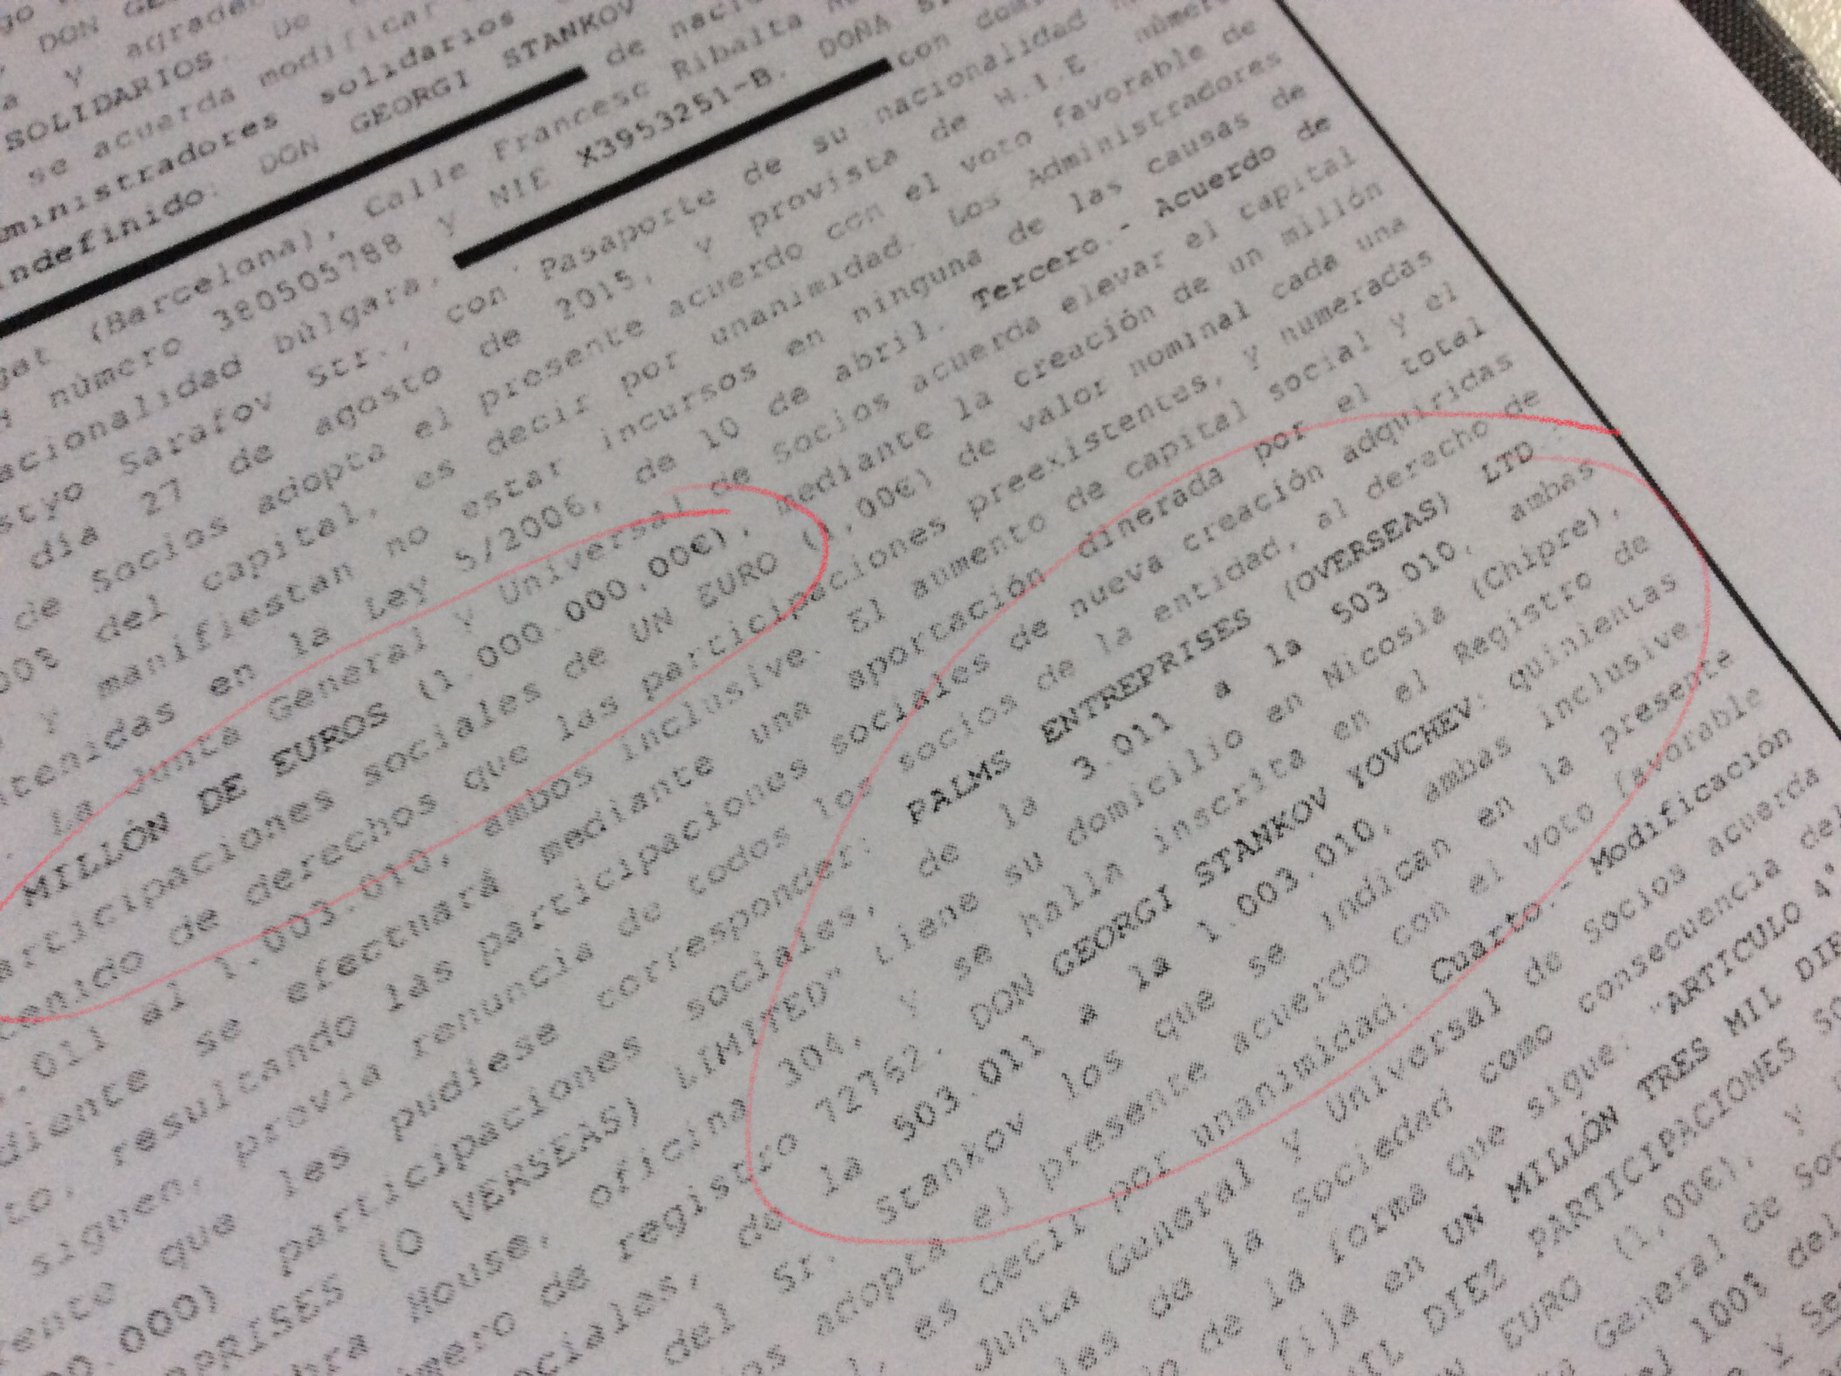 DON GE
a y agrada
SOLIDARIOS. De
se acuerda modificar
ministradores solidarios
indefinido: DON GEORGI STANKOV de nacio
gat (Barcelona), Calle Francesc Ribalta
número 380505788 y NIE X3953251-B. DOÑA
acionalidad búlgara, con domi
styo Sarafov Str., con Pasaporte de su nacionalidad
día 27 de agosto de 2015, y provista de N.I.E. número
de Socios adopta el presente acuerdo con el voto favorable de
00% del capital, es decir por unanimidad. Los Administradores
y manifiestan no estar incursos en ninguna de las causas de
tenidas en la Ley 5/2006, de 10 de abril. Tercero.- Acuerdo de
La Junta General y Universal de Socios acuerda elevar el capital
MILLÓN DE EUROS (1.000.000,00€), mediante la creación de un millón
articipaciones sociales de UN EURO (1,00€) de valor nominal cada una
tenido de derechos que las participaciones preexistentes, y numeradas
.011 al 1.003.010, ambos inclusive. El aumento de capital social y el
diente se efectuará mediante una aportación dinerada por el total
to, resultando las participaciones sociales de nueva creación adquiridas
siguen, previa renuncia de todos los socios de la entidad, al derecho de
rente que les pudiese corresponder: PALMS ENTREPRISES (OVERSEAS) LTD.:
00.000) participaciones sociales, de la 3.011 a la 503.010, ambas
RPRISES (O VERSEAS) LIMITED" tiene su domicilio en Nicosia (Chipre),
bra House, oficina 304, y se halla inscrita en el Registro de
mero de registro 72762. DON GEORGI STANKOV YOVCHEV: quinientas
ociales, de la 503.011 a la 1.003.010, ambas inclusive
del Sr. Stankov los que se indican en la presente
os adopta el presente acuerdo con el voto favorable
l, es decir por unanimidad. Cuarto.- Modificación
Junta General y Universal de Socios acuerda
les de la Sociedad como consecuencia de
o de la forma que sigue: "ARTICULO 4º
fija en UN MILLÓN TRES MIL DIE
IL DIEZ PARTICIPACIONES SO
N EURO (1,00€), y
General de Soc
al 100% del
y Se